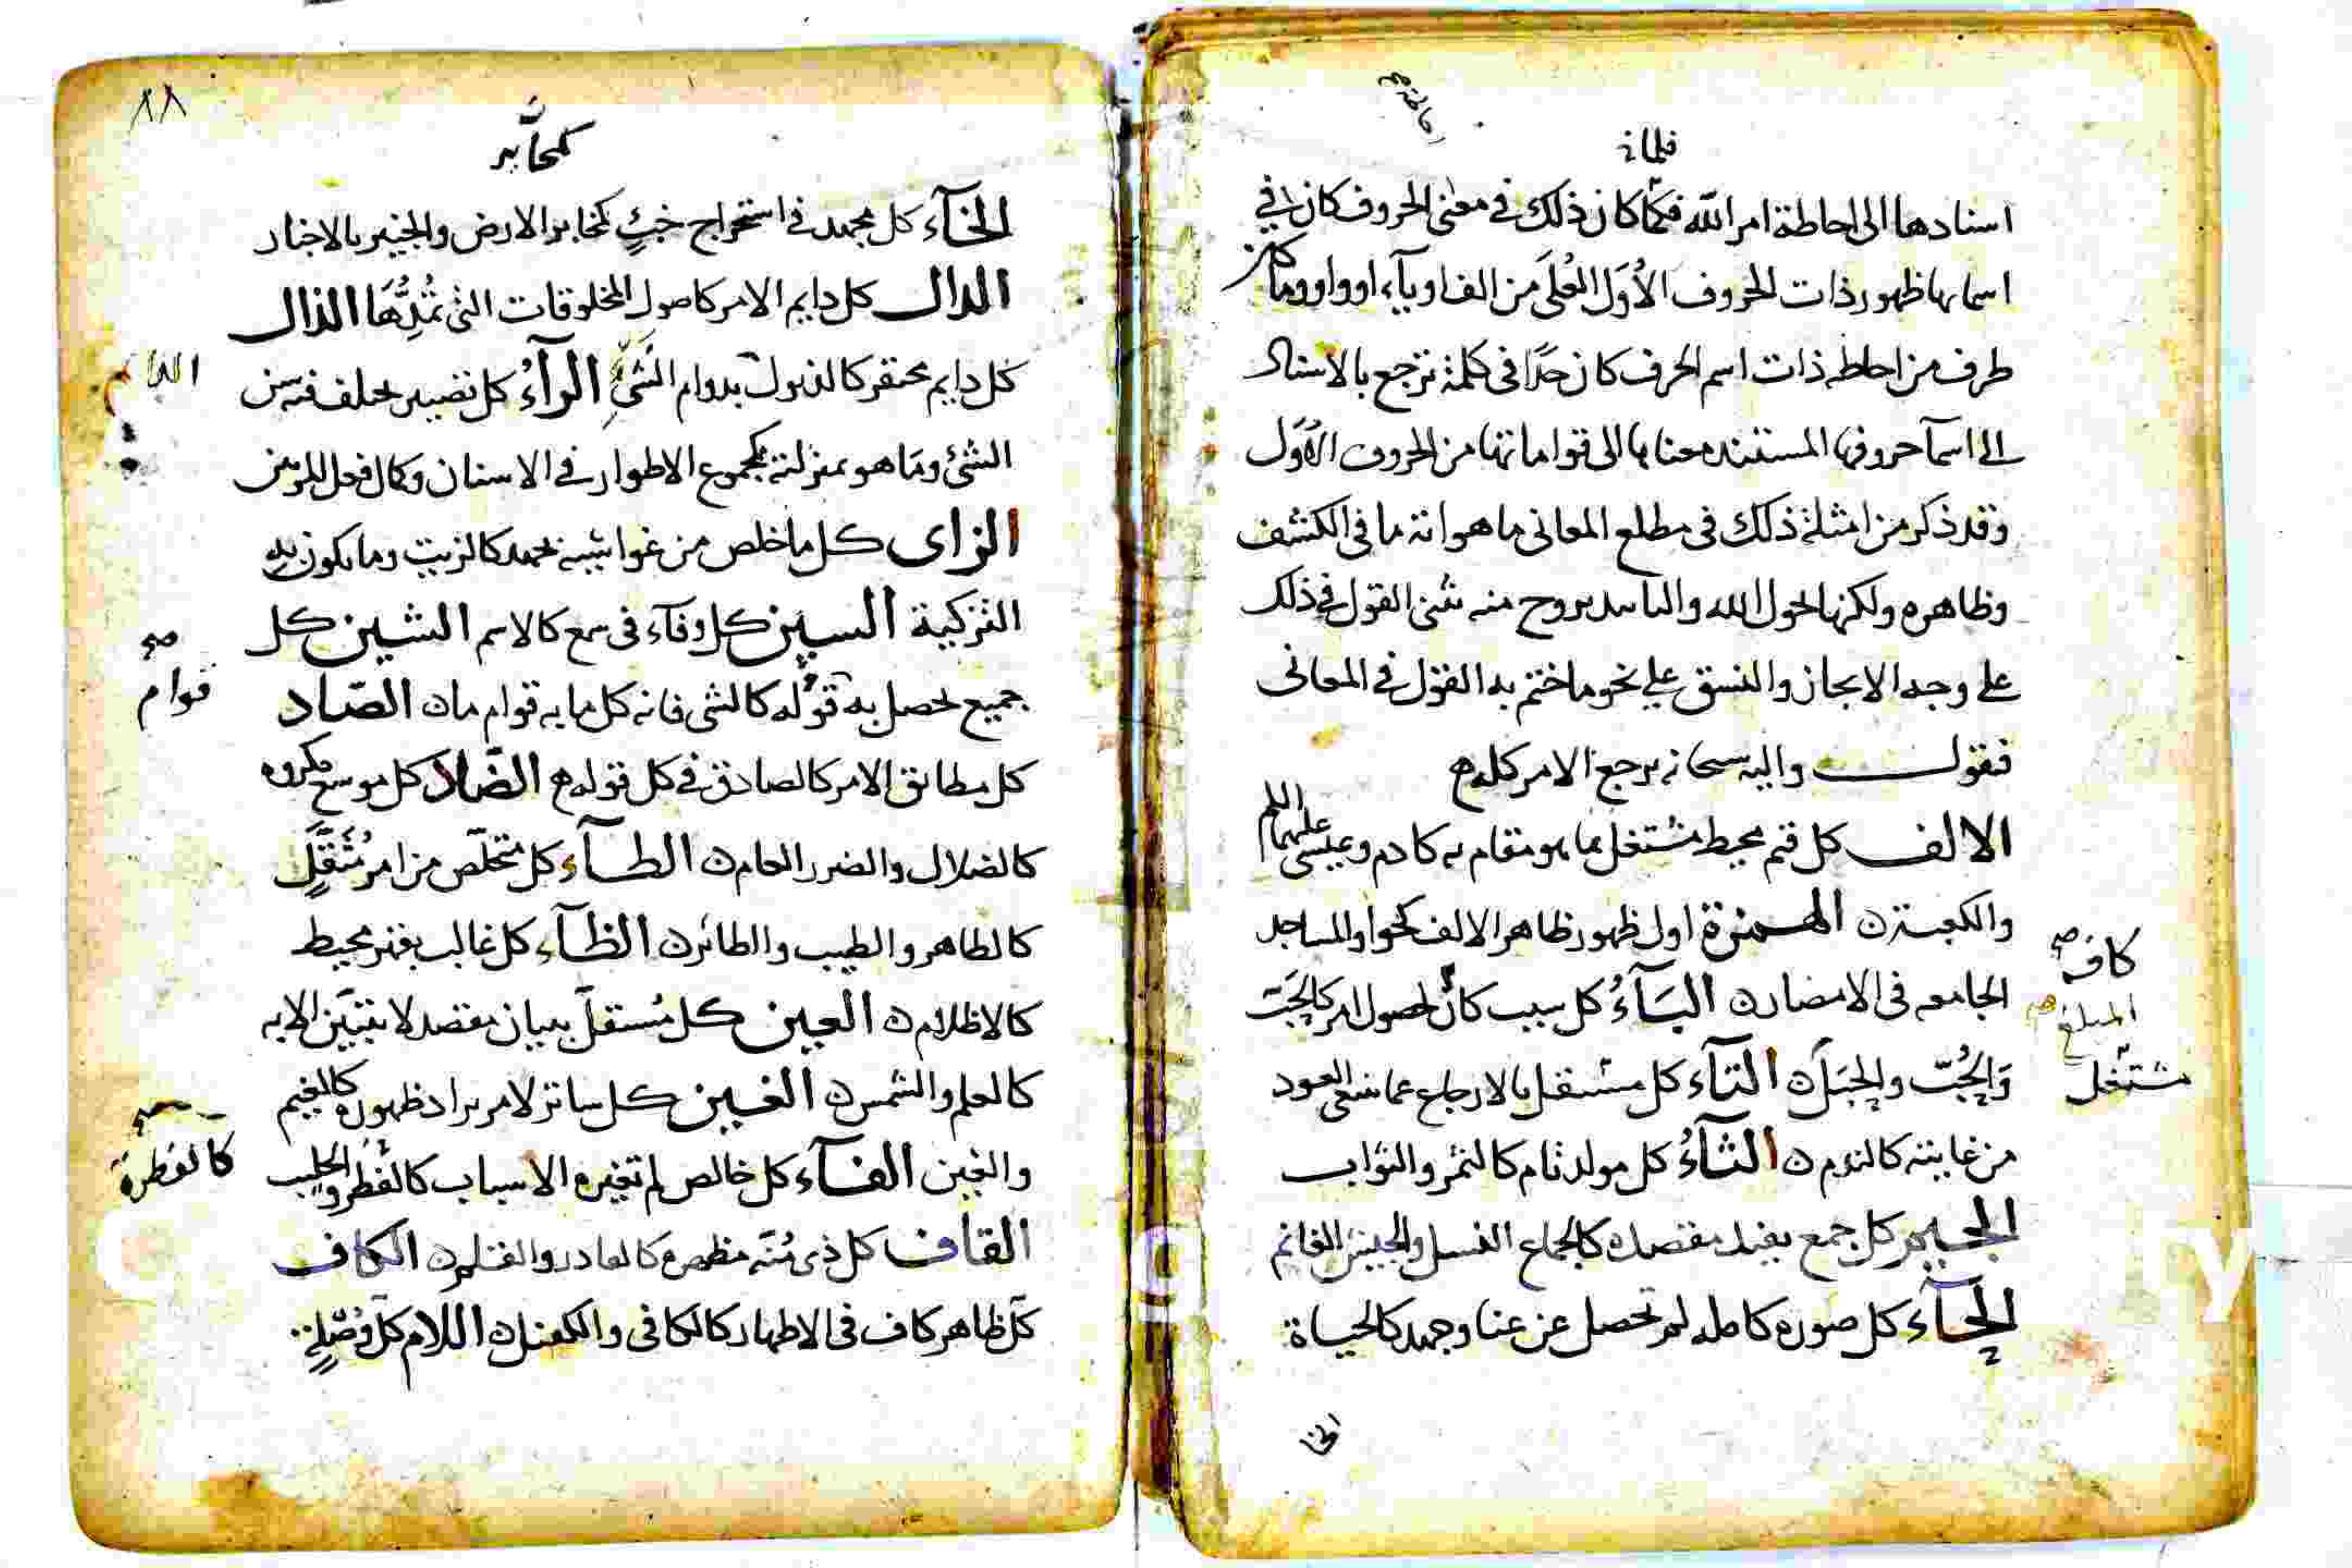 فلما
اسنادها الى احاطة امر الله فكما كان ذلك في معنى الحروف كان في
اسمايها ظهور ذات الحروف الأول العلى من الف او يآء او واو وما كان
طرف من احاطه ذات اسم الحرف كان حدا في كلمة ترجع بالاسناد
الى اسمآ حروفها المستند معناها الى قواماتها من الحروف الأول
وقد ذكر من امثلة ذلك في مطلع المعاني ما هو انه ما في الكشف
وظاهره ولكنها لحول الله القول في ذلك
على وجه الايجاز والنسق على نحو ما ختم به القول في المعاني
فنقول واليه سبحانه يرجع الامر كله
الالف كل قيم محيط مشتغل بما هو مقام به كادم وعيسى عليهما السلم
والكعبة الهمزة اول ظهور ظاهر الالف نحو المساجد
الجامعه في الامصار البَآءُ كل سبب كان لحصول امر
وَالجُبّ والجبَل التآء كل مستقل بالارجاع عما العود
من غايته كالندم الثآءُ كل مولد تام كالثمر والثواب
الجيم كل جمع يفيد مقصده كالجماع الغسل والجيش الغانم
الحآء كل صوره كامله لم تحصل عن عنا وجهد كالحياة
كاف صح
المبلغ
مشتغل
الخا
٨٨
كمخابر
الخآء كل مجهد في استخراج خبئٍ كمخابر الارض والخبير بالاخبار
الدال كل دايم الامر كاصول المخلوقات التي تمُدِّهَا الذال
كل دايم محتقر كالذبول بدوام الشئ الرآءُ كل تصيير
الشئ وما هو بمنزلته كمجموع الاطوار في الاسنان وكال فعل
الزاى كل ما خلص من غواشيه بجهد كالزيت وما يكون به
التزكية السين كل وفآء في سمع كالاسم الشين كل
جميع تحصل به قوله كالشي فانه كل ما به قوام الصّاد
كل مطابق الامر كالصادق في كل قوله الضّاد كل موسع مكروه
كالضلال والضرر العام الطآء كل متخلّص من امر مُثَقَّلٍ
كالطاهر والطيب والطائر الظآء كل غالب بقهر محيط
كالاظلام العين كل مُستقلّ ببيان مقصد لا يتبيّن الا به
كالعلم والشمس الغين كل ساتر لامر يراد ظهوره كالغيم
والغين الفآء كل خالص لم تغيره الاسباب كالفطر والحليب
القاف كل ذي مُنّة مظهره كالقادر والقلم الكاف
كل ظاهر كاف في الاظهار كالكافي والكفيل اللام كل وُصْلةٍ
صح
قوام
صح
كالفطرة